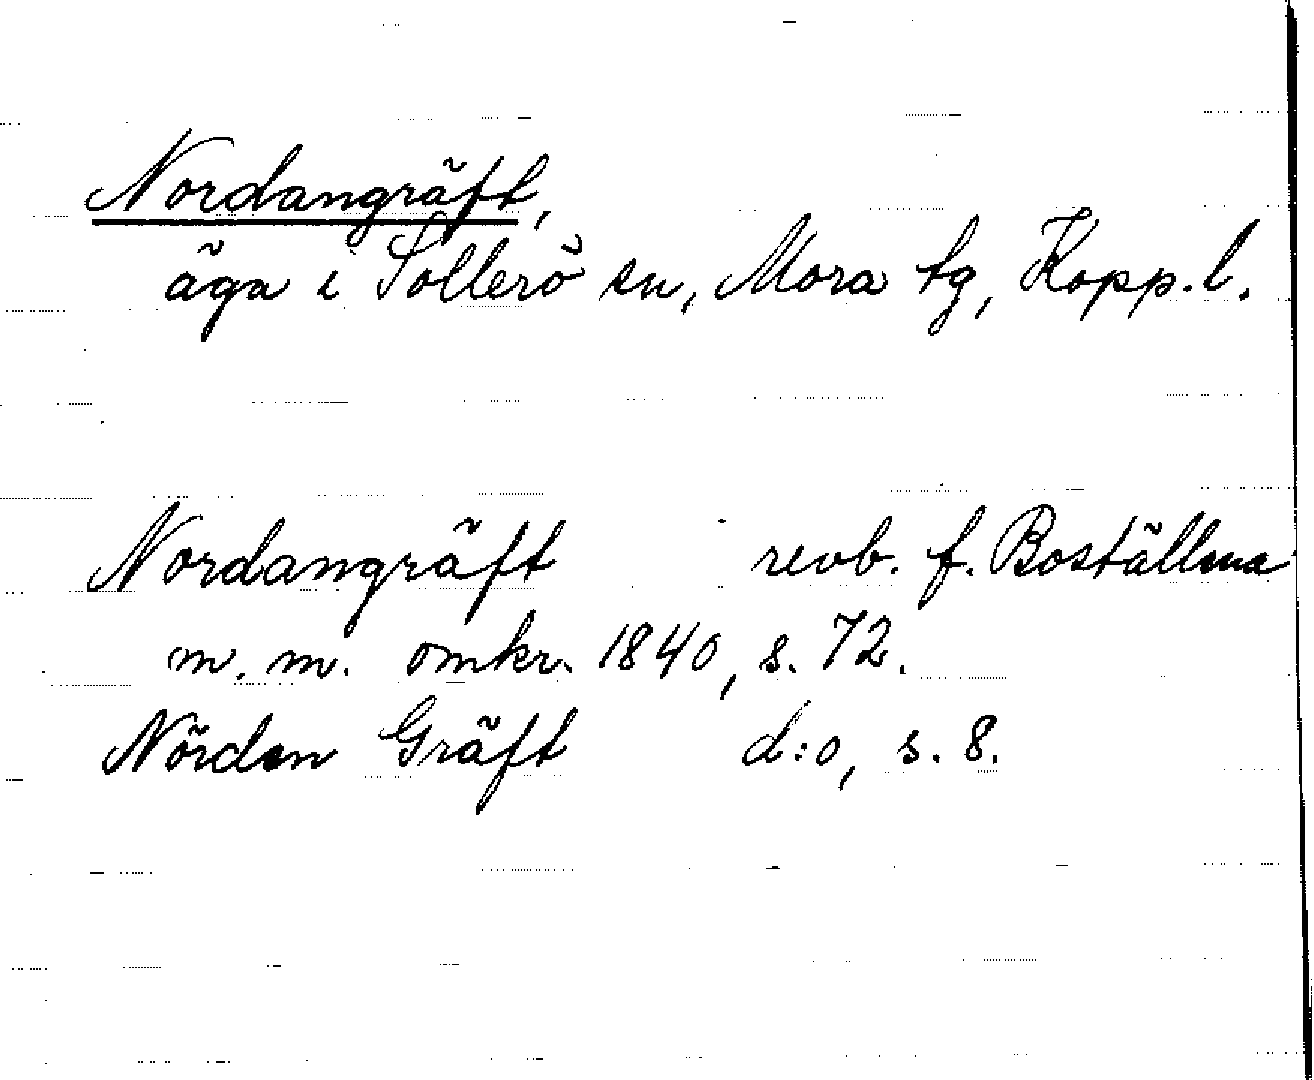 Nordangräft,
äga i Sollerö sn, Mora tg, Kopp.l.
Nordangräft revb. f. Boställena
m. m. omkr. 1840, s. 72.
Nörden Gräft d:o, s. 8.